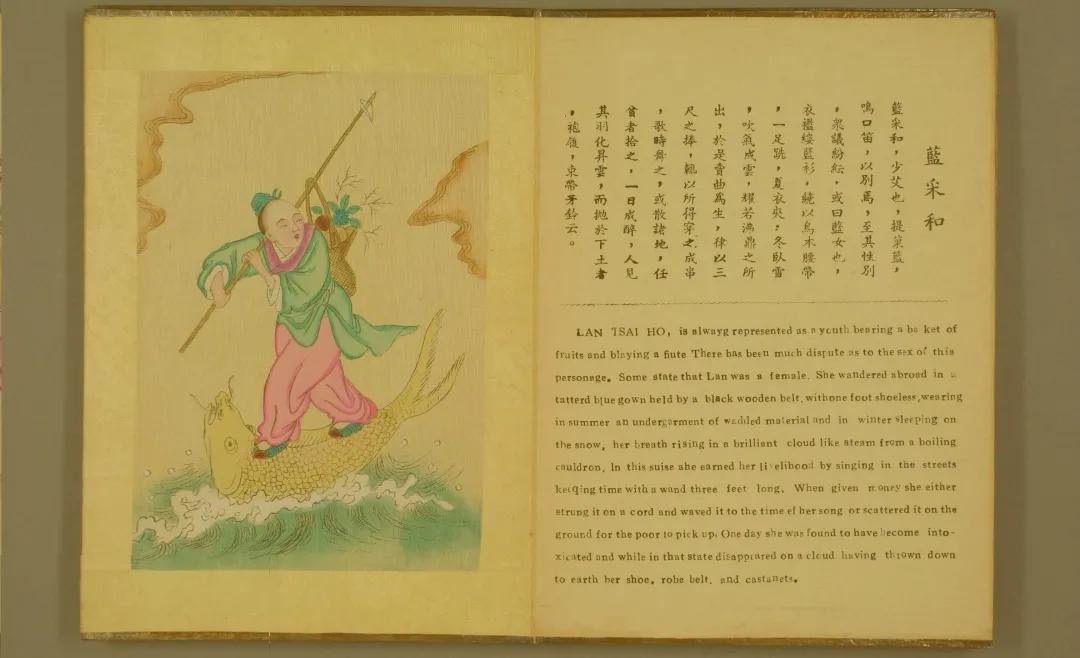 藍采和
藍采和，少艾也，提菓籃，
鳴口笛，以別焉，至其性別
，衆議紛紜，或曰藍女也，
衣襤褸藍衫，繞以烏木腰帶
，一足跣，夏衣夾；冬臥雪
，吹氣成雲，耀若沸鼎之所
出，於是賣曲爲生，律以三
尺之捧，輒以所得穿之成串
，歌時舞之，或散諸地，任
貧者拾之，一日成醉，人見
其羽化昇雲，而拋於下土者
，袍履，束帶牙鈴云。
LAN TSAI HO, is alwayg represented as a youth bearing a ba ket of
fruits and blaying a fiute There has been much dispute as to the sex of this
personage. Some state that Lan was a female. She wandered abroad in a
tatterd blue gown held by a black wooden belt, withone foot shoeless,wearing
in summer an undergarment of wadded material and in winter sleeping on
the snow, her breath rising in a brilliant cloud like steam from a boiling
cauldron. In this suise ahe earned her livelihood by singing in the streets
keeqing time with a wand three feet long. When given money she either
strung it on a cord and waved it to the time ef her song or scattered it on the
ground for the poor to pick up. One day she was found to have become into-
xicated and while in that state disappeared on a cloud having thrown down
to earth her shoe, robe belt, and castanets.